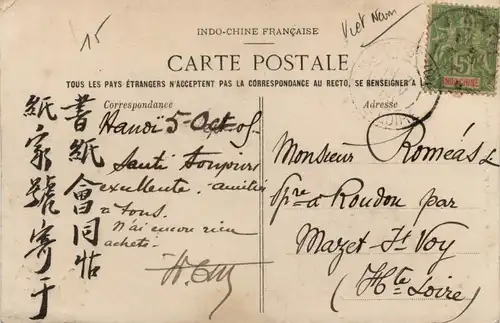 15
INDO-CHINE FRANÇAISE
Viet Nam
CARTE POSTALE
5
INDO-CHINE
TOUS LES PAYS ÉTRANGERS N'ACCEPTENT PAS LA CORRESPONDANCE AU RECTO, SE RENSEIGNER A
Correspondance
Adresse
Hanoï 5 Oct 05
Santé toujours
excellente. amitiés
à tous.
N'ai encore rien
acheté.
書紙會同帖
紙家號寄于
Monsieur Roméas
Pre à Roudon par
Mazet St Voy
(Hte Loire)